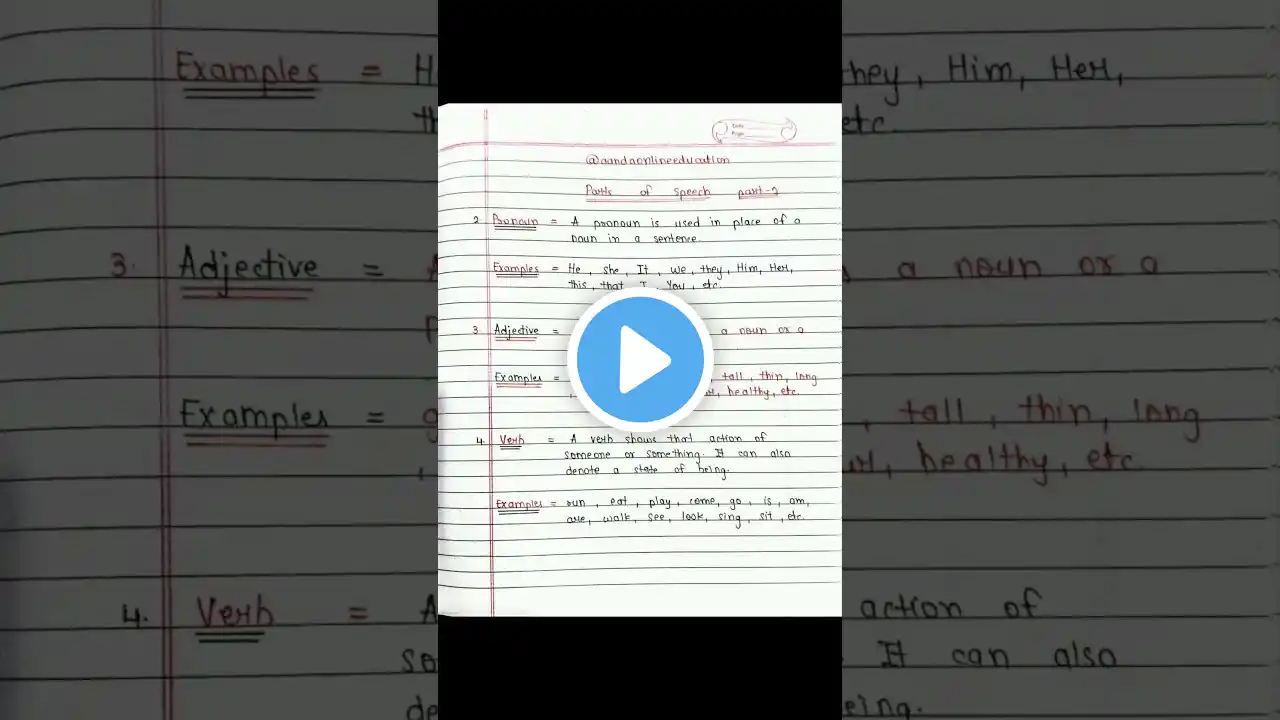 Date
Page
@aandaonlineeducation
Parts of speech part-2
2. Pronoun = A pronoun is used in place of a
noun in a sentence.
Examples = He, she, It, we, they, Him, Her,
this, that, I, You, etc.
3. Adjective = a noun or a
Examples = tall, thin, long
, healthy, etc.
4. Verb = A verb shows that action of
someone or something. It can also
denote a state of being.
Examples = run, eat, play, come, go, is, am,
are, walk, see, look, sing, sit, etc.